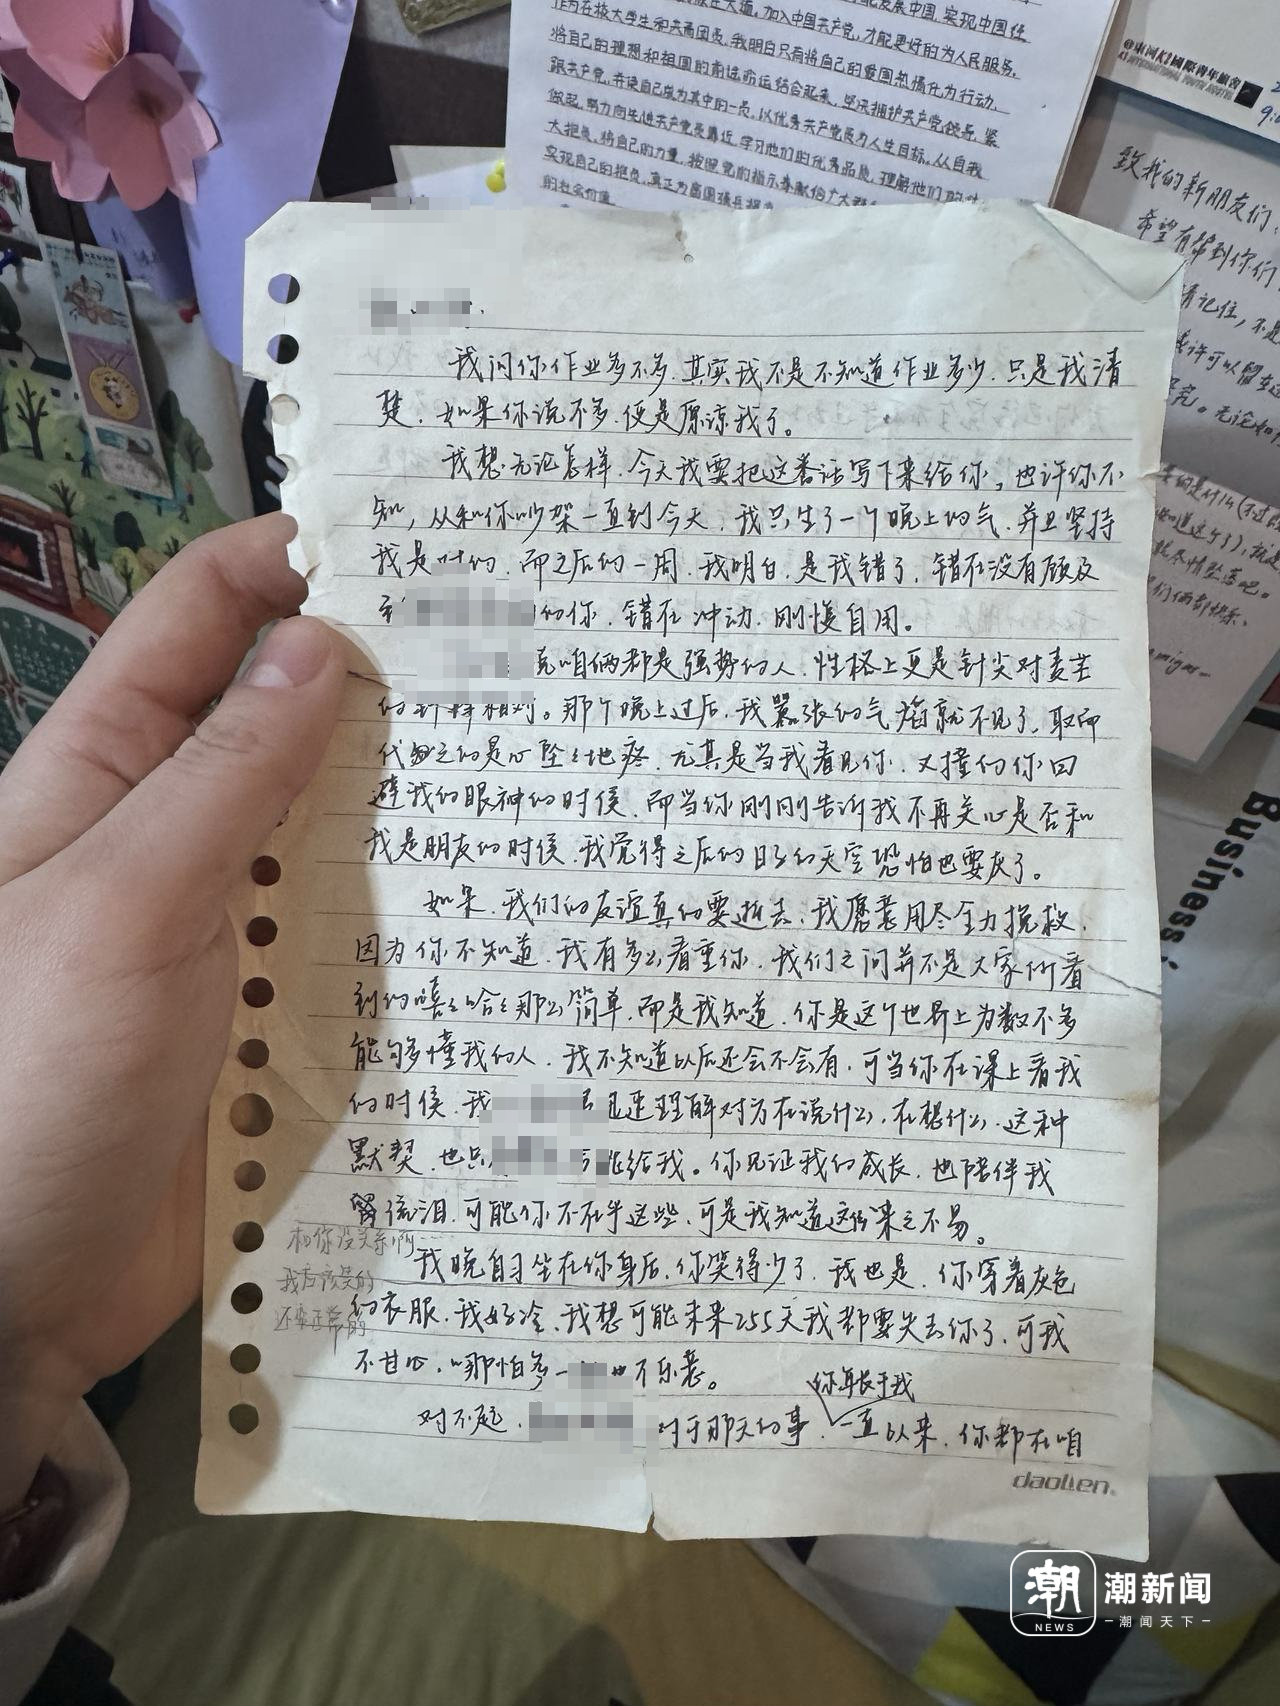 作为在校大学生和共青团员,我明白只有将自己的爱国热情化为行动,
将自己的理想和祖国的前途命运结合起来,坚决拥护共产党领导,紧
跟共产党,并使自己成为其中的一员,以优秀共产党员为人生目标,从自我
做起,努力向先进共产党员靠近,学习他们的优秀品质,理解他们的
大担负,将自己的力量,按照党的指示奉献给广大
实现自己的担负,真正为富国强兵
的社会价值
致我的新朋友们,
希望有帮到你们
请记住,不是
也许可以留在这
完。无论如
我问你作业多不多,其实我不是不知道作业多少,只是我清
楚,如果你说不多,便是原谅我了。
我想无论怎样,今天我要把这番话写下来给你,也许你不
知,从和你吵架一直到今天,我只生了一个晚上的气,并且坚持
我是对的,而之后的一周,我明白,是我错了,错在没有顾及
的你,错在冲动,刚愎自用。
竟咱俩都是强势的人,性格上更是针尖对麦芒
的针锋相对。那个晚上过后,我嚣张的气焰就不见了,取而
代之的是心坠坠地疼,尤其是当我看见你,又撞的你回
避我的眼神的时候,而当你刚刚告诉我不再关心是否和
我是朋友的时候,我觉得之后的日子的天空恐怕也要灰了。
如果,我们的友谊真的要逝去,我愿意用尽全力挽救,
因为你不知道,我有多么看重你,我们之间并不是大家所看
到的嘻嘻哈哈那么简单,而是我知道,你是这个世界上为数不多
能够懂我的人,我不知道以后还会不会有,可当你在课上看我
的时候,我 迅速理解对方在说什么,在想什么,这种
默契,也只 能给我。你见证我的成长,也陪伴我
流泪,可能你不在乎这些,可是我知道这份来之不易。
和你没关系啊
我应该笑的
还蛮正常的
我晚自习坐在你身后,你笑得少了,我也是,你穿着灰色
的衣服,我好冷,我想可能未来255天我都要失去你了,可我
不甘心,哪怕多一 也不乐意。
你年长于我
对不起, 对于那天的事,一直以来,你都在咱
daolien
Business
潮
NEWS
潮新闻
潮闻天下